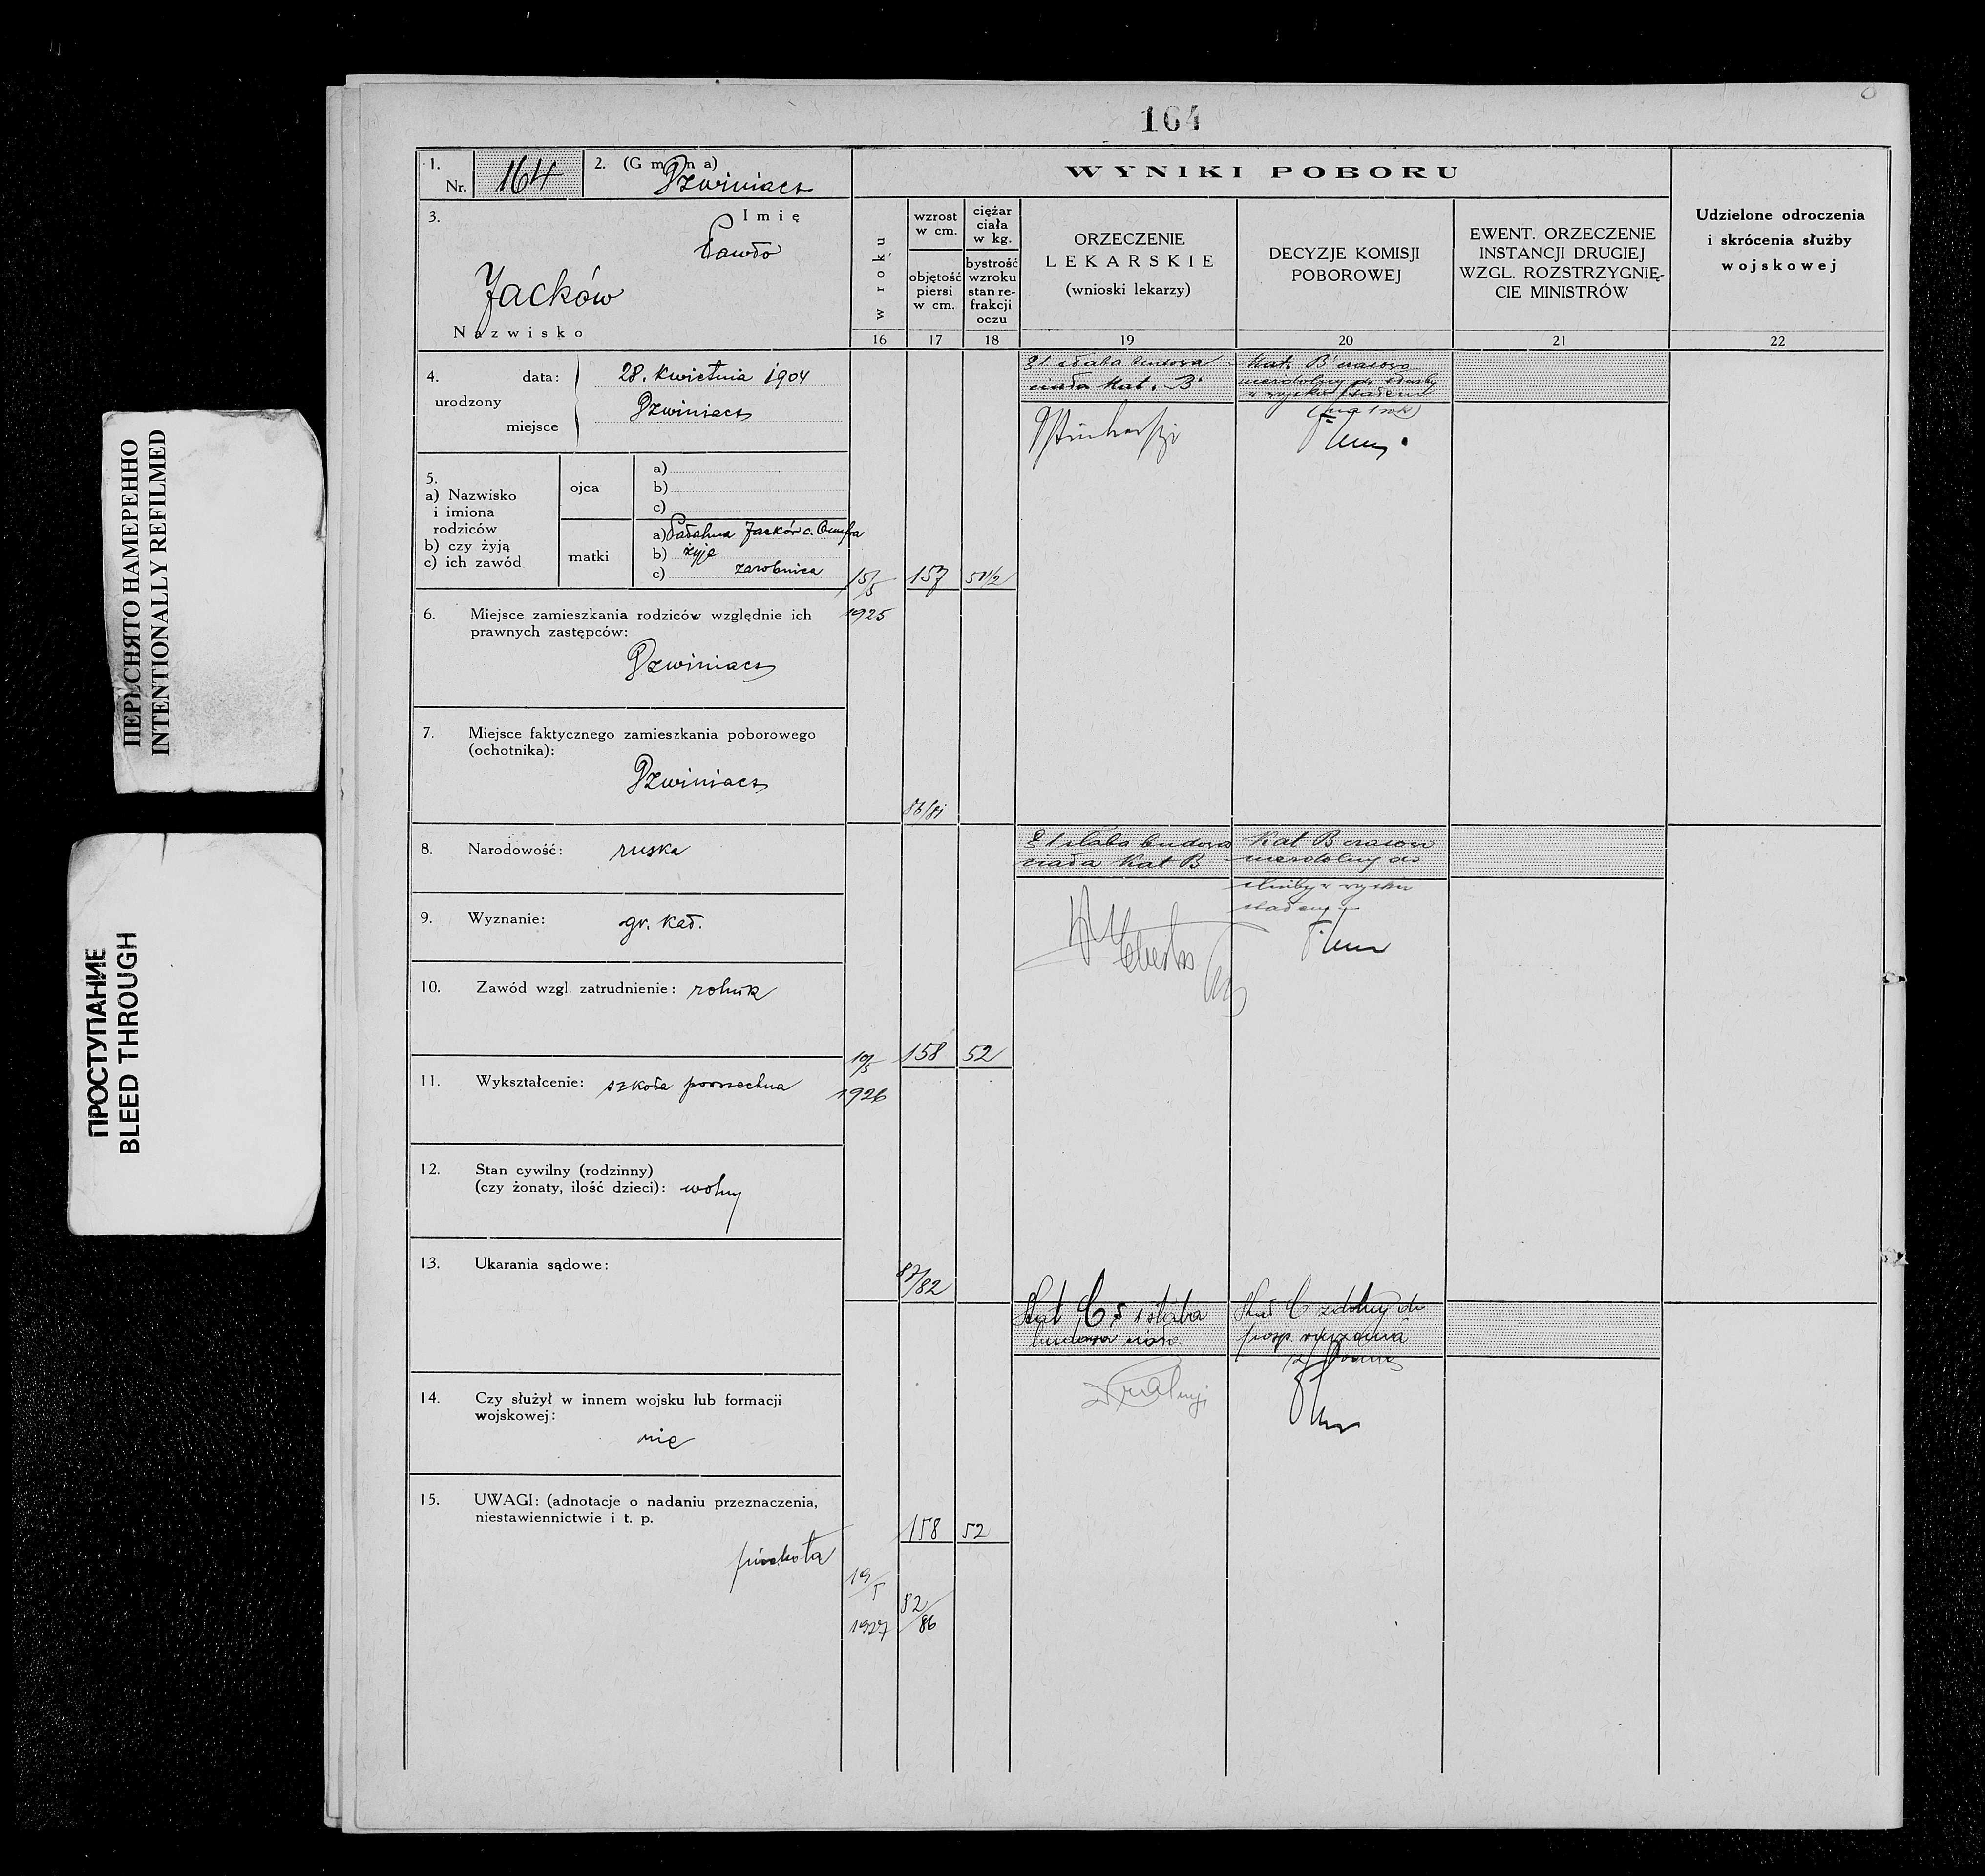 ПЕРЕСНЯТО НАМЕРЕННО
INTENTIONALLY REFILMED
ПРОСТУПАНИЕ
BLEED THROUGH
164
1.
Nr. 164
2. (Gmina)
Dzwiniacz
3. Imię
Pawło
Jacków
Nazwisko
4. data: 28. kwietnia 1904
urodzony
Dzwiniacz
miejsce
5.
a) Nazwisko
i imiona
rodziców
b) czy żyją
c) ich zawód
ojca
a)
b)
c)
matki
a) Jacków c.
b) żyje
c) zarobnica
6. Miejsce zamieszkania rodziców względnie ich
prawnych zastępców:
Dzwiniacz
7. Miejsce faktycznego zamieszkania poborowego
(ochotnika):
Dzwiniacz
8. Narodowość: ruska
9. Wyznanie: gr. kat.
10. Zawód wzgl zatrudnienie: rolnik
11. Wykształcenie: szkoła powszechna
12. Stan cywilny (rodzinny)
(czy żonaty, ilość dzieci): wolny
13. Ukarania sądowe:
14. Czy służył w innem wojsku lub formacji
wojskowej:
nie
15. UWAGI: (adnotacje o nadaniu przeznaczenia,
niestawiennictwie i t. p.
piechota
WYNIKI POBORU
w roku
16
wzrost
w cm.
objętość
piersi
w cm.
17
ciężar
ciała
w kg.
bystrość
wzroku
stan re-
frakcji
oczu
18
ORZECZENIE
LEKARSKIE
(wnioski lekarzy)
19
DECYZJE KOMISJI
POBOROWEJ
20
EWENT. ORZECZENIE
INSTANCJI DRUGIEJ
WZGL. ROZSTRZYGNIĘ-
CIE MINISTRÓW
21
Udzielone odroczenia
i skrócenia służby
wojskowej
22
15/5 157 51 1/2
1925
86/81
słaba budowa
ciała Kat. B
Kat. B czasowo
niezdolny do służby
w wojsku stałem
(na 1 rok)
słaba budowa
ciała Kat B
Kat B czasowo
niezdolny do
służby w wojsku
stałem
19/5 158 52
1926
87/82
Kat C słaba
budowa
Kat C zdolny do
posp. ruszenia
158 52
19/5
1927
82/86